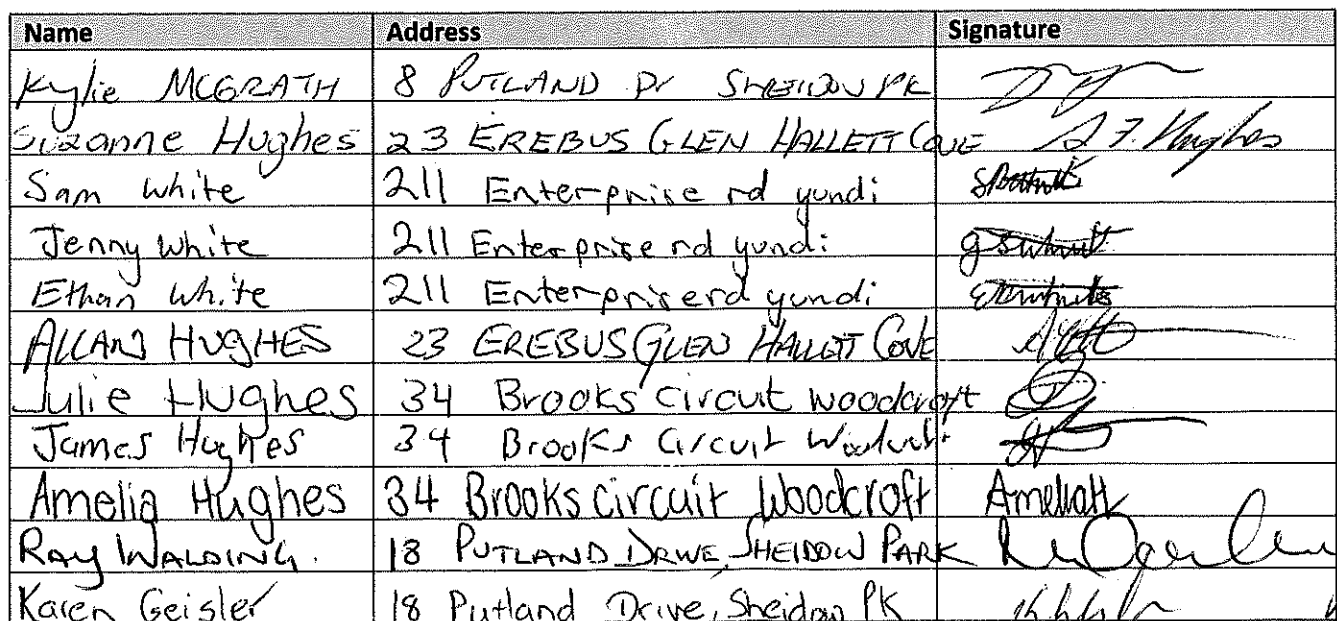 Name Address Signature
Kylie MCGRATH 8 PUTLAND Dr SHEIDOW PK
Suzanne Hughes 23 EREBUS GLEN HALLETT COVE S F. Hughes
Sam White 211 Enterprise rd yundi
Jenny White 211 Enterprise rd yundi
Ethan White 211 Enterprise rd yundi
ALLAN HUGHES 23 EREBUS GLEN HALLETT COVE
Julie Hughes 34 Brooks circuit woodcroft
James Hughes 34 Brooks Circuit
Amelia Hughes 34 Brooks circuit Woodcroft AmeliaH
RAY WALDING. 18 PUTLAND DRIVE, SHEIDOW PARK
Karen Geisler 18 Putland Drive, Sheidow PK